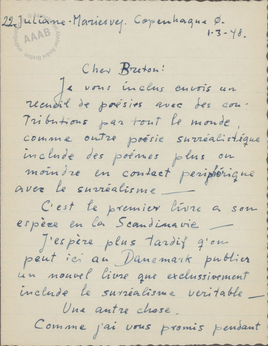 22. Juliane-Mariesvej. Copenhague Ø.
1-3-48.
AAAB
Cher Breton:
Je vous inclus envois un
recueil de poésies avec des con-
tributions par tout le monde,
comme outre poésie surréalistique
include des poèmes plus on
moindre en contact periphérique
avec le surréalisme —
C'est le premier livre a son
espèce en la Scandinavie —
J'espère plus tardif q'on
peut ici au Danemark publier
un nouvel livre que exclussivement
include le surréalisme veritable —
Une autre chose.
Comme j'ai vous promis pendant